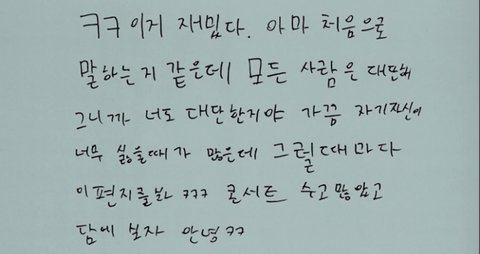 ㅋㅋ 이게 재밌다. 아마 처음으로
말하는지 같은데 모든 사람은 대단해
그니까 너도 대단한지야 가끔 자기자신이
너무 싫을때가 많은데 그럴때마다
이편지를봐 ㅋㅋㅋ 콘서트 수고많았고
담에 보자 안녕ㅋㅋ